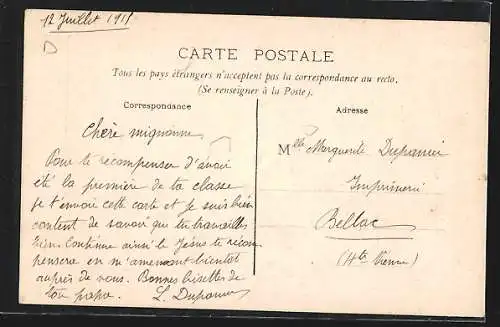 12 Juillet 1911
D
CARTE POSTALE
Tous les pays étrangers n'acceptent pas la correspondance au recto.
(Se renseigner à la Poste).
Correspondance
Adresse
Chère mignonne
Pour te récompenser d'avoir
été la première de ta classe
je t'envoie cette carte et je suis bien
content de savoir que tu travailles
bien. Continue ainsi le Jésus te récom
pensera en m'amenant bientôt
auprès de vous. Bonnes bisettes de
ton papa. L.
Mlle Marguerite
Imprimerie
Bellac
(Hte Vienne)